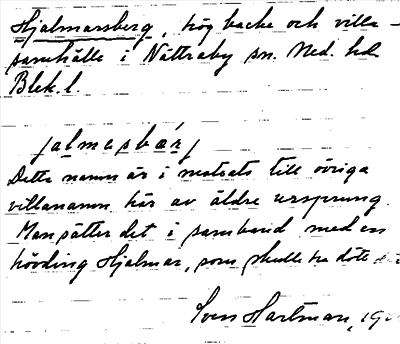 Hjalmarsberg, hög backe och villa-
samhälle i Nättraby sn. Med. hd
Blek. l.
jalmasbær
Detta namn är i motsats till övriga
villanamn här av äldre ursprung.
Man sätter det i samband med en
hövding Hjalmar, som skulle ha
Sven Hartman, 19